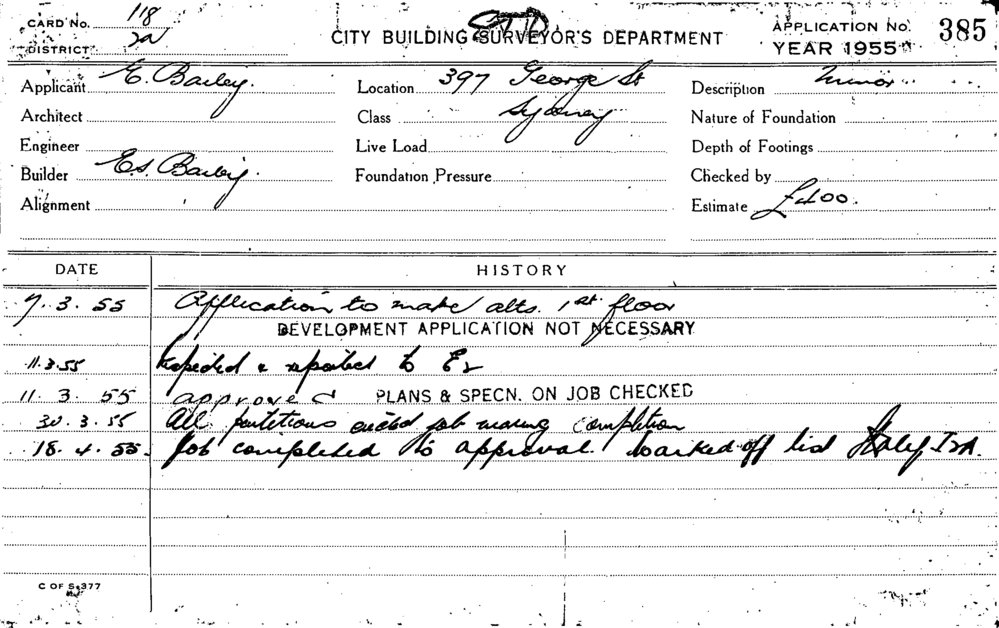 CARD No. 118
DISTRICT 2A
CITY BUILDING SURVEYOR'S DEPARTMENT
APPLICATION No. 385
YEAR 1955
Applicant E. Bailey.
Location 397 George St
Description Minor
Architect
Class Sydney
Nature of Foundation
Engineer
Live Load
Depth of Footings
Builder E.S. Bailey.
Foundation Pressure
Checked by
Alignment
Estimate £400.
DATE HISTORY
7. 3. 55 Application to make alts. 1st floor
DEVELOPMENT APPLICATION NOT NECESSARY
11.3.55 Inspected & reported to
11. 3. 55 approved PLANS & SPECN. ON JOB CHECKED
30. 3. 55 All partitions erected job nearing completion
18. 4. 55. Job completed to approval. Marked off list
C OF S 377